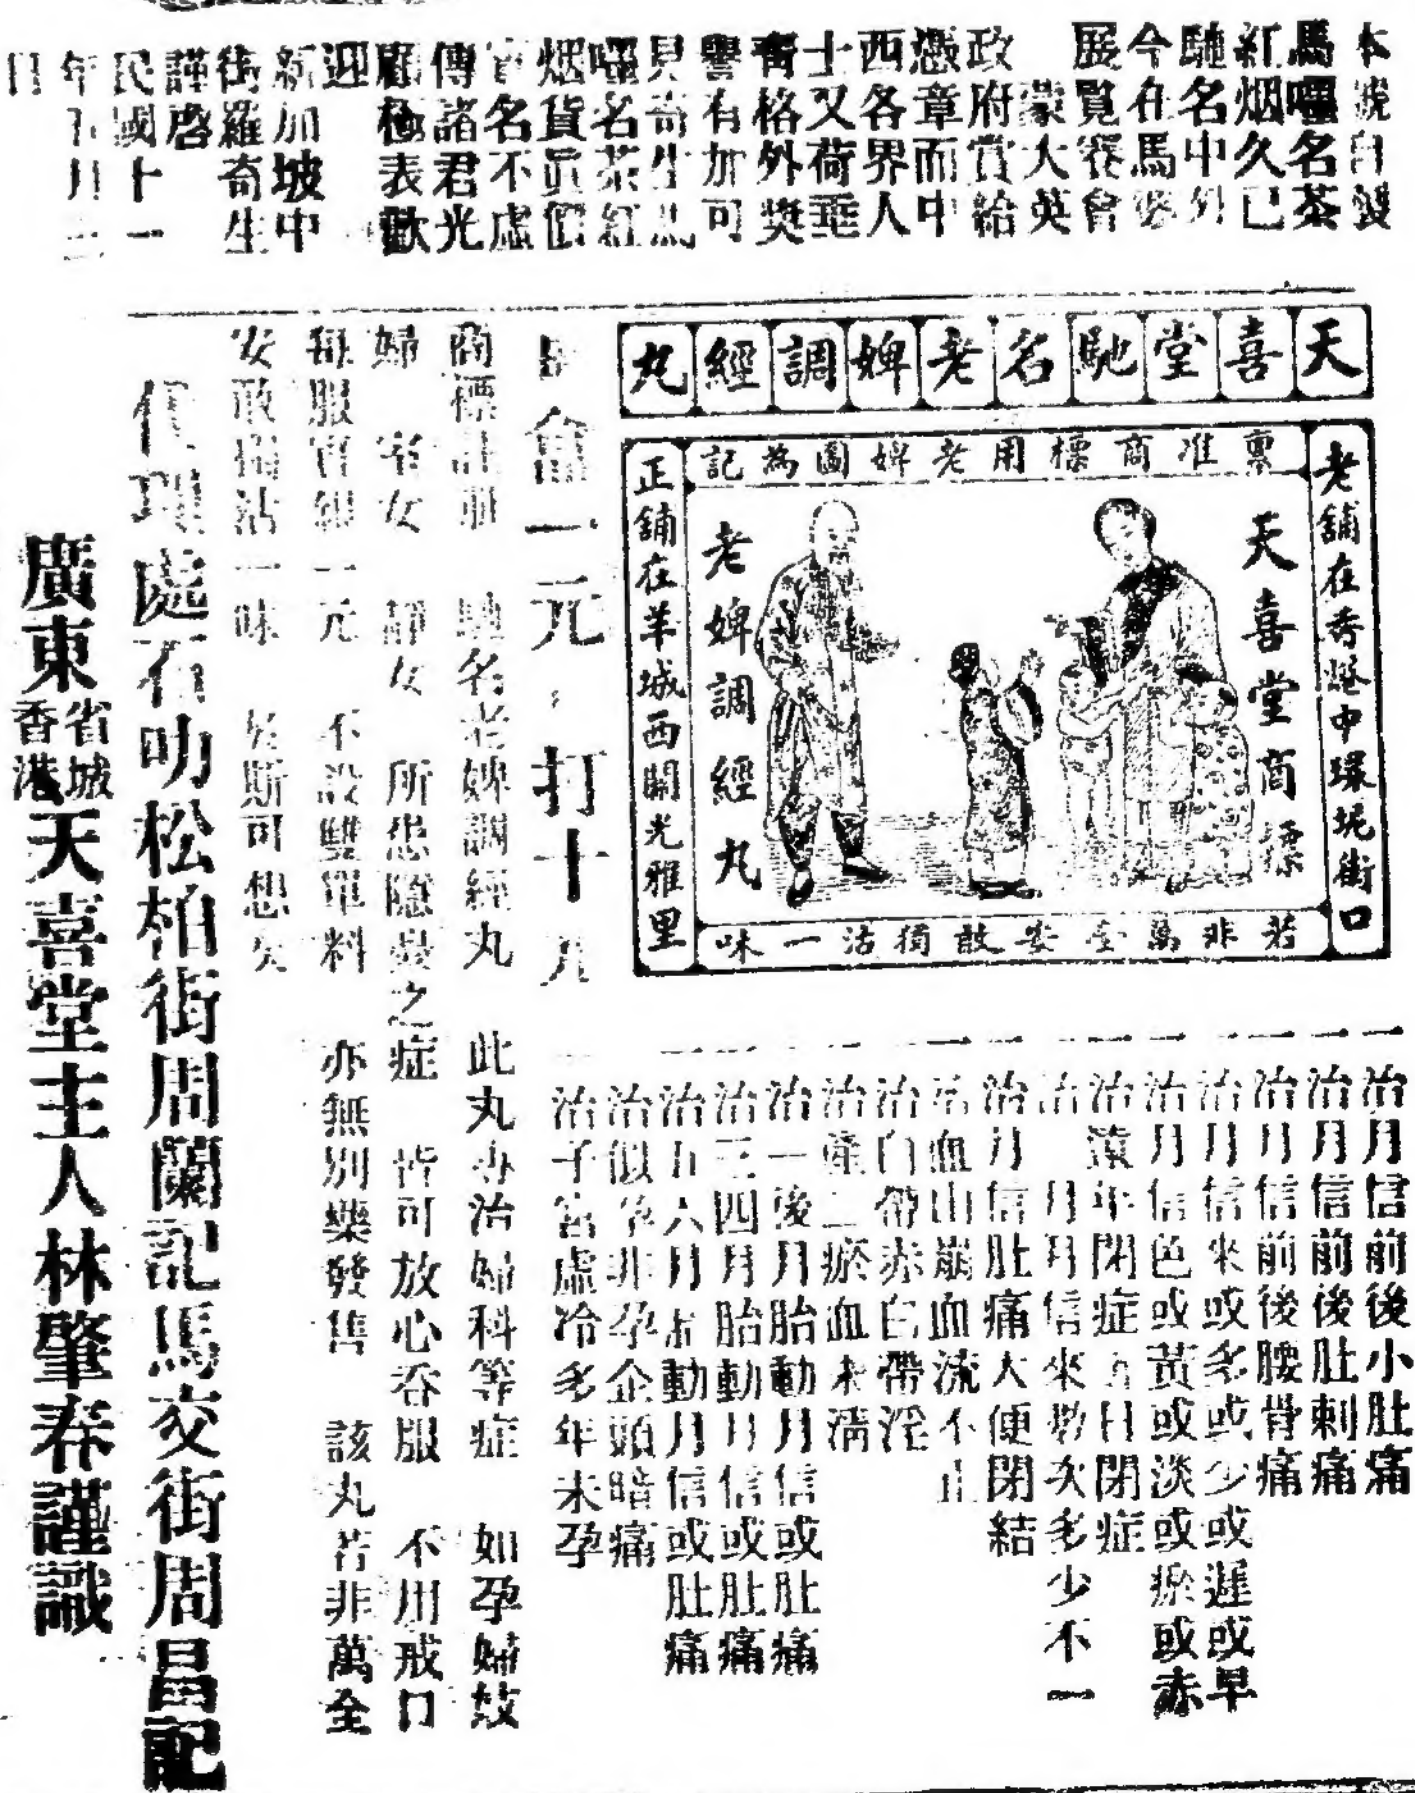 本號自製
馬嚁名茶
紅烟久已
馳名中外
今在馬
展覽賽會
蒙大英
政府賞給
憑章而中
西各界人
士又荷垂
青格外獎
譽有加可
見奇生馬
嚁名茶紅
烟貨真價
實名不虛
傳諸君光
顧極表歡
迎
新加坡中
街羅奇生
謹啓
民國十一
年 月
日
天喜堂馳名老婢調經丸
稟准商標用老婢圖為記
老舖在香港中環 街口
天喜堂商標
老婢調經丸
正舖在羊城西關光雅里
若非萬全安敢獨沽一味
一治月信前後小肚痛
一治月信前後肚刺痛
一治月信前後腰背痛
一治月信來或多或少或遲或早
一治月信色或黃或淡或瘀或赤
一治遠年閉症 日閉症
一治 月月信來數次多少不一
一治月信肚痛大便閉結
一治血山崩血流不止
一治白帶赤白帶淫
一治產後瘀血未淸
一治一後月胎動月信或肚痛
一治三四月胎動月信或肚痛
一治五六月胎動月信或肚痛
一治似孕非孕企頭暗痛
一治子宮虛冷多年未孕
每盒一元 打十 元
商標註册 馳名老婢調經丸 此丸專治婦科等症 如孕婦妓
婦 室女 靜女 所患隱 之症 皆可放心吞服 不用戒口
每服官銀一元 不設雙單料 亦無別藥發售 該丸若非萬全
安敢獨沽一味 於斯可想矣
代理處石叻松柏街周蘭記馬交街周昌記
廣東省城香港天喜堂主人林肇春謹識